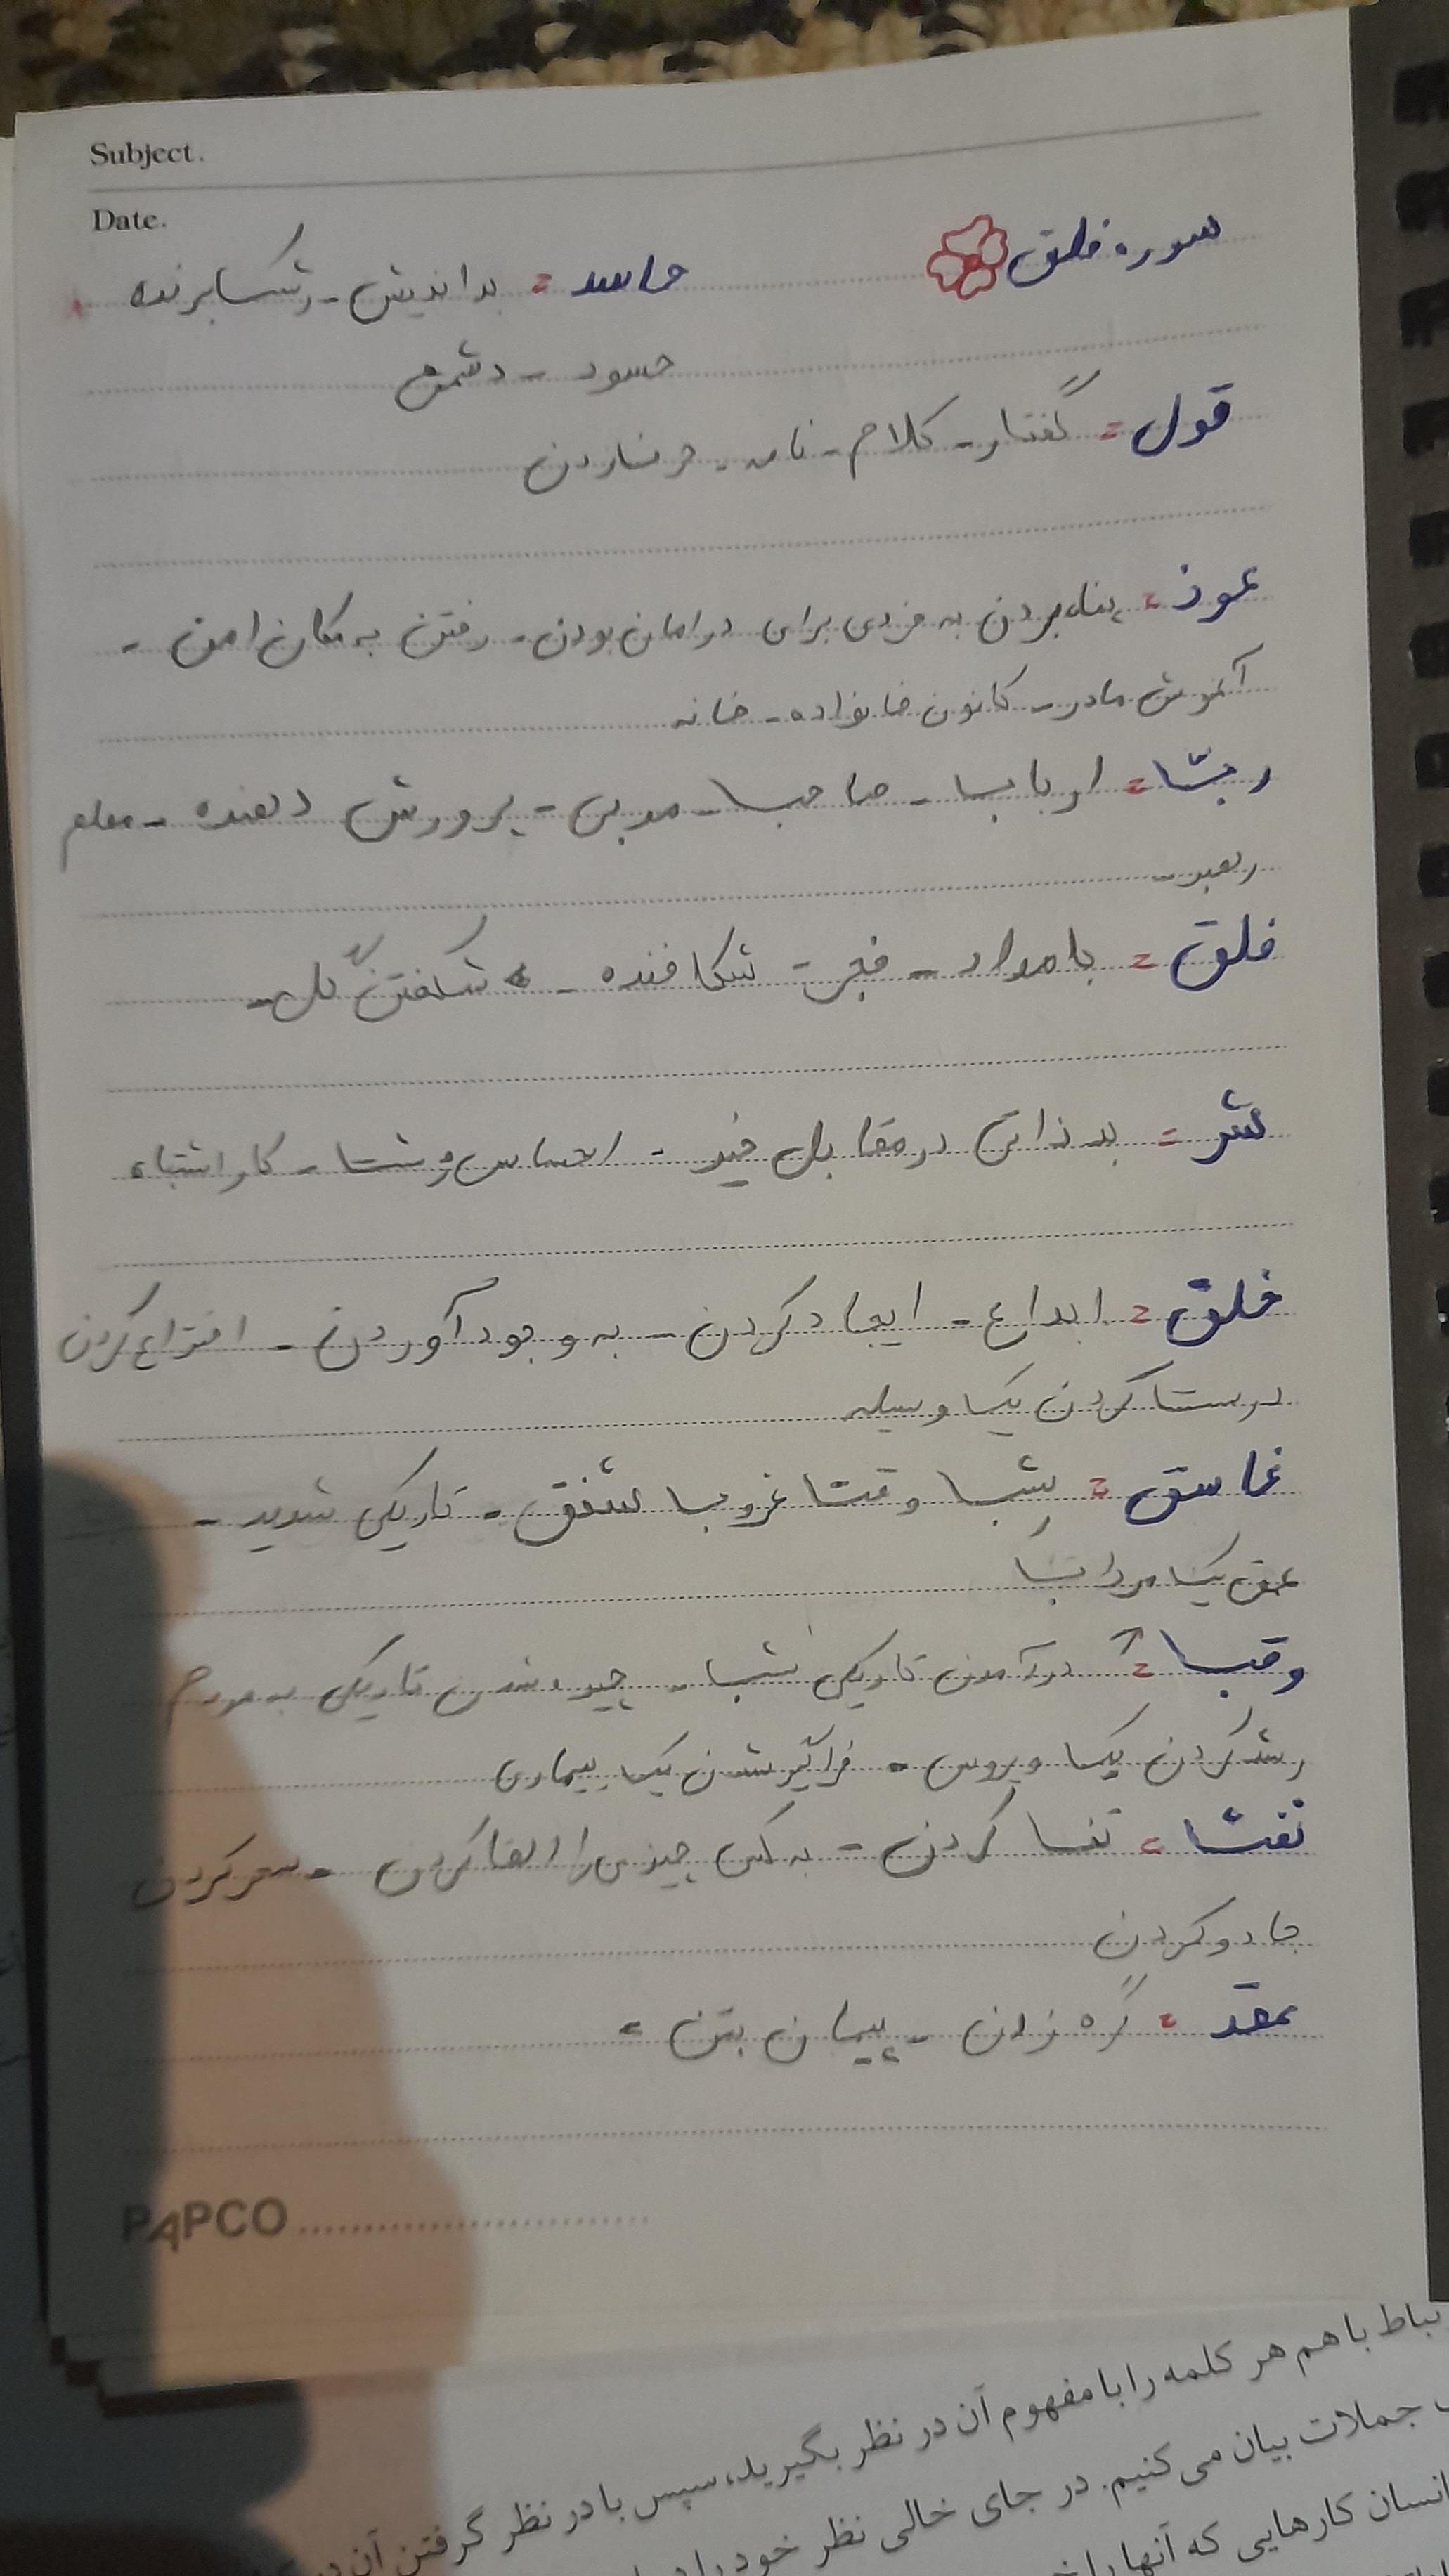 Subject.
Date.
سوره فلق
حاسد = بداندیش - رشک برنده
حسود - دشمن
قول = گفتار - کلام - نامه -
عوذ = پناه بردن به فردی برای در امان بودن - رفتن به مکان امن -
آغوش مادر - کانون خانواده - خانه
ربّ = ارباب - صاحب - مربی - پرورش دهنده - معلم
رهبر -
فلق = بامداد - فجر - شکافنده - شکفتن گل -
شر = بد ذاتی در مقابل خیر - احساس زشت - کار اشتباه
خلق = ابداع - ایجاد کردن - به وجود آوردن - اختراع کردن
درست کردن یک وسیله
غاسق = شب وقت غروب شفق - تاریکی شدید -
عمق یک مرداب
وقب = درآمدن تاریکی شب - چیره شدن تاریکی به مردم
رشد کردن یک ویروس - فراگیر شدن یک بیماری
نفث = تف کردن - به کسی چیزی را القا کردن - سحر کردن
جادو کردن
عقد = گره زدن - پیمان بستن -
PAPCO
تباط با هم هر کلمه را با مفهوم آن در نظر بگیرید، سپس با در نظر گرفتن آن در
جملات بیان می کنیم. در جای خالی نظر خود را در
انسان کارهایی که آنها را